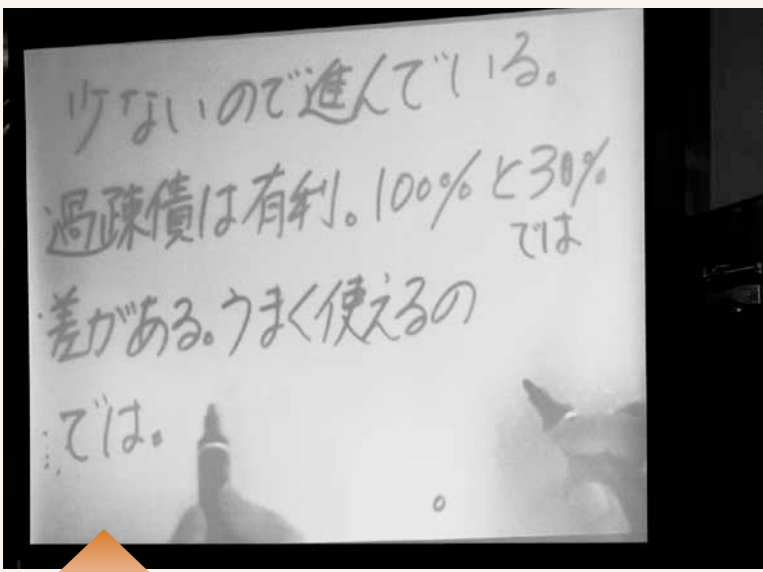 少ないので進んでいる。
過疎債は有利。100%と30%
では
差がある。うまく使えるの
では。